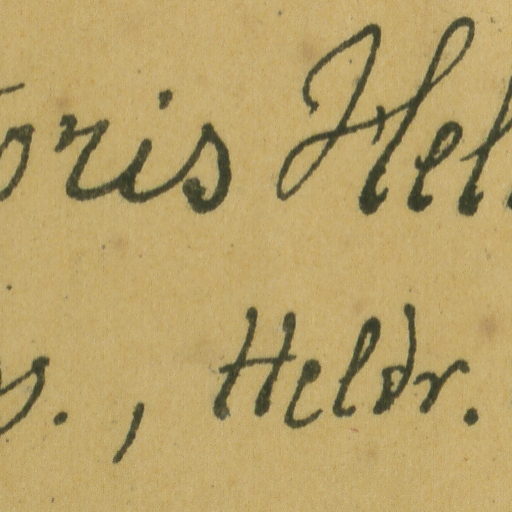 oris Hel
s., Heldr.